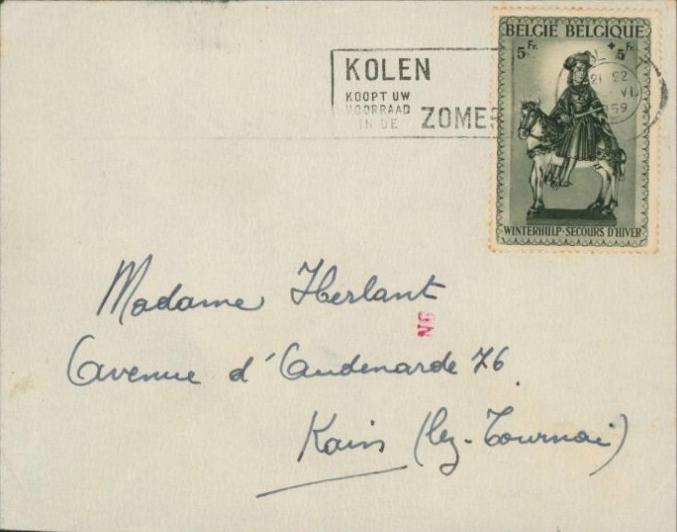 KOLEN
KOOPT UW
VOORRAAD
IN DE ZOMER
BELGIE BELGIQUE
5 Fr. + 5 Fr.
21 22
VI
1959
WINTERHULP·SECOURS D'HIVER
Madame Herlant
NB
Avenue d'Audenarde 76
Kain (lez-Tournai)